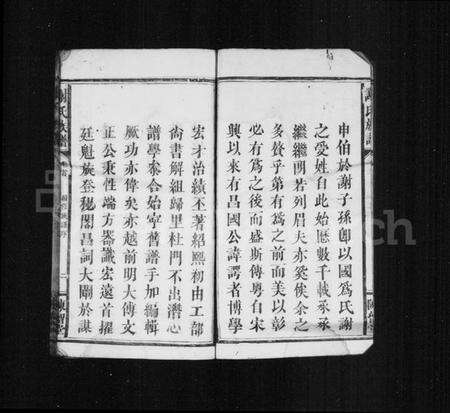 申伯於謝子孫卽以國爲氏謝
之受姓自此始歷數千載承承
繼繼明若列眉夫亦奚俟余之
多贅乎第有爲之前而美以彰
必有爲之後而盛斯傳粵自宋
興以來有昌國公諱諤者博學
宏才治績丕著紹熙初由工部
尙書解組歸里杜門不出潛心
譜學叅合始寧舊譜手加編輯
厥功亦偉矣亦越前明大傳文
正公秉性端方器識宏遠首擢
廷魁旋登秘閣昌詞大闡於謀